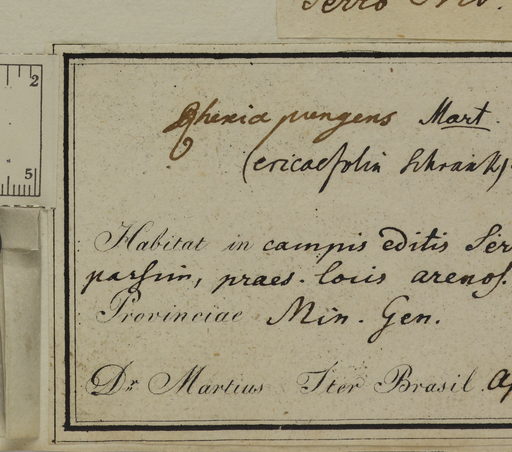 Serro Frio.
2
5
Rhexia pungens Mart.
(ericaefolia Schrank)
Habitat in campis editis Ser
passim, praes. locis arenos.
Provinciae Min. Gen.
Dr Martius Iter Brasil. Ap